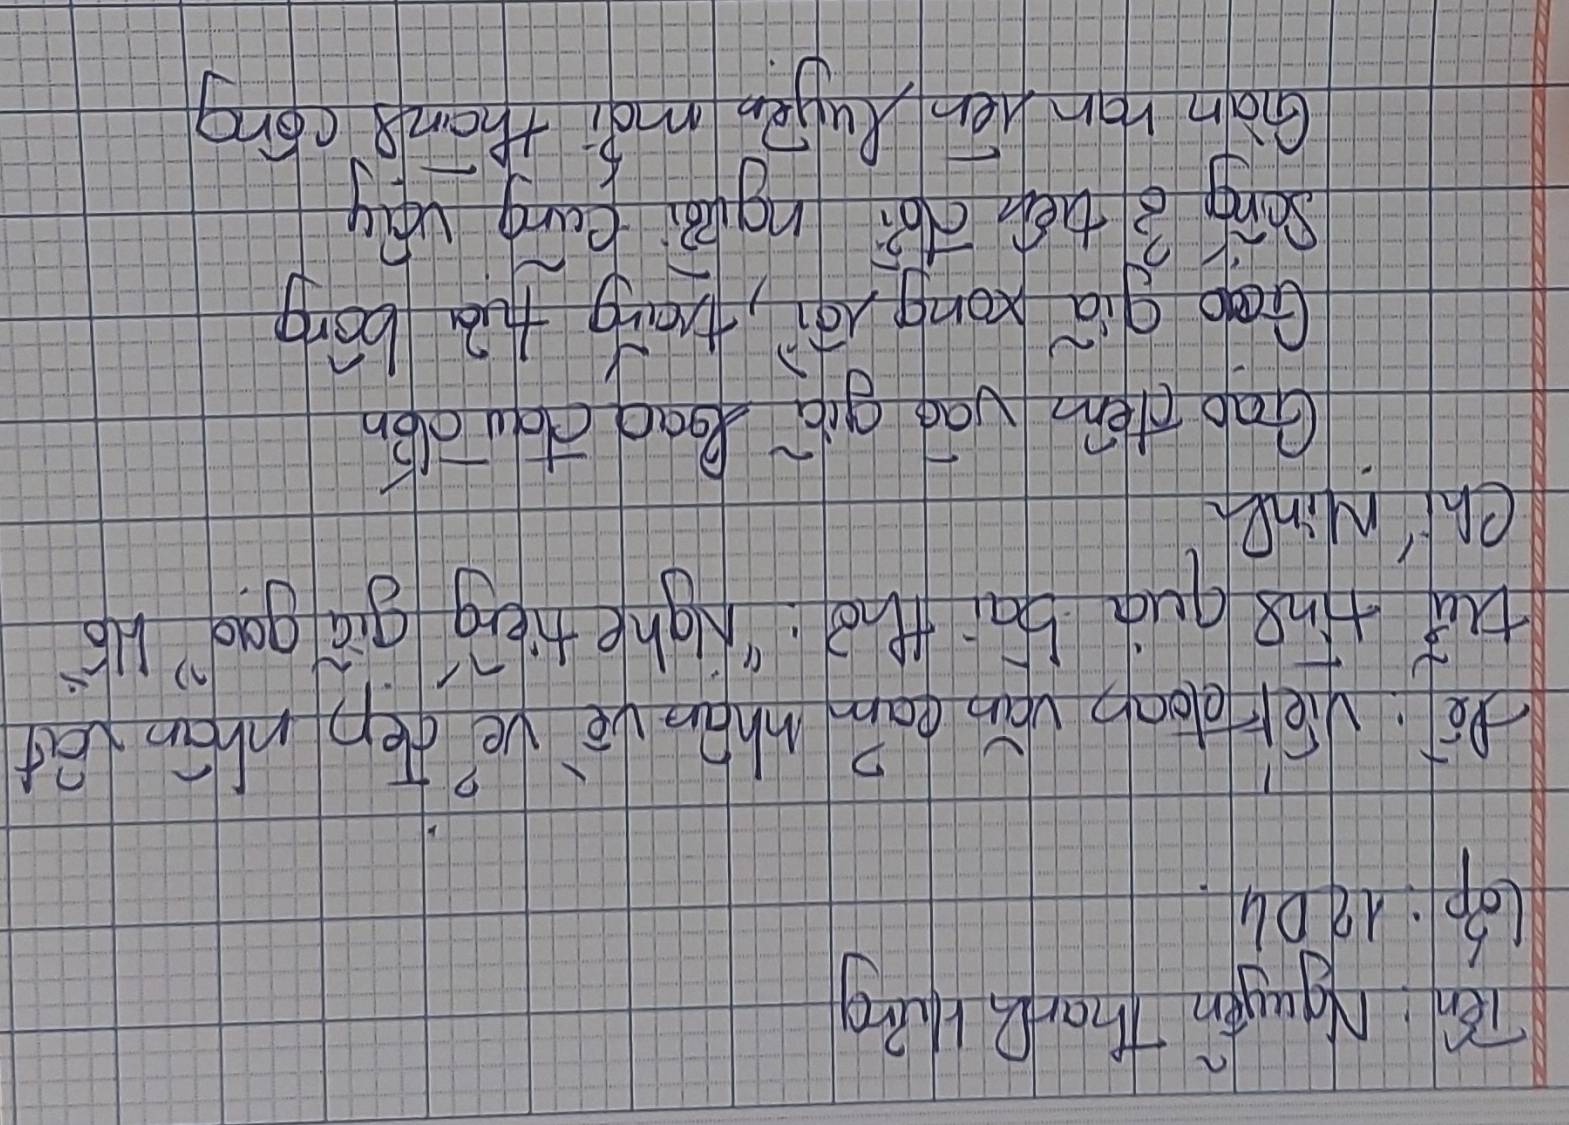 Tên: Nguyễn Thanh Hưng
Lớp: 12D4
Đề: Viết đoạn văn cảm nhận về vẻ đẹp nhân vật
trữ tình qua bài thơ: "Nghe tiếng giã gạo" Hồ
Chí Minh
Gạo đem vào giã bao đau đớn
Gạo giã xong rồi, trắng tựa bông
Sống ở trên đời người cũng vậy
Gian nan rèn luyện mới thành công